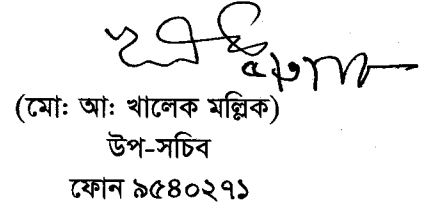 (মোঃ আঃ খালেক মল্লিক)
উপ-সচিব
ফোন ৯৫৪০২৭১